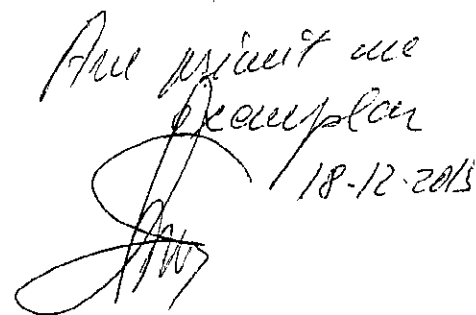 Am primit un
exemplar
18-12-2015